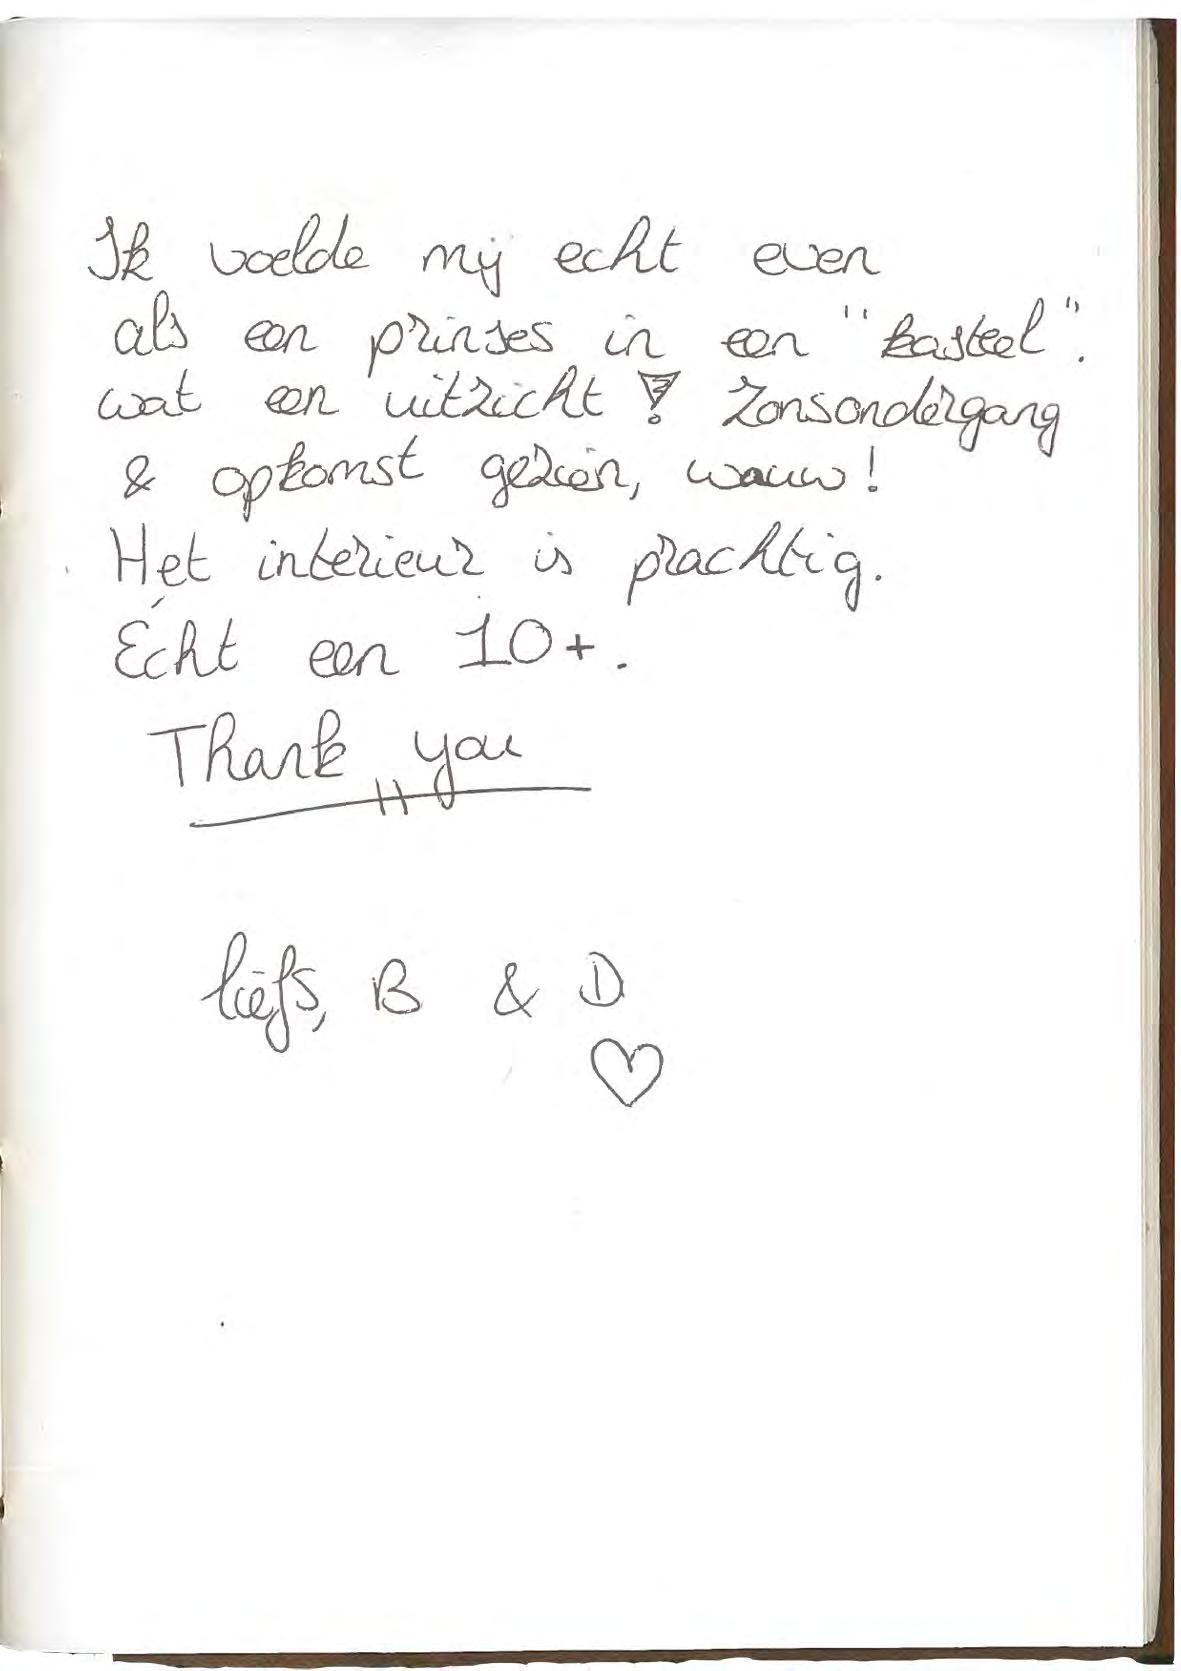 Ik voelde mij echt even
als een prinses in een "kasteel".
wat een uitzicht! Zonsondergang
& opkomst gezien, wauw!
Het interieur is prachtig.
Écht een 10+.
Thank you
liefs, B & D
♡